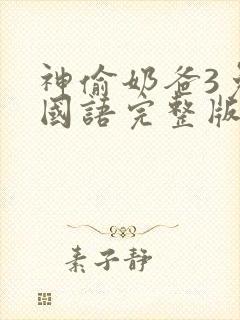 神偷奶爸3
國語完整版
素子靜